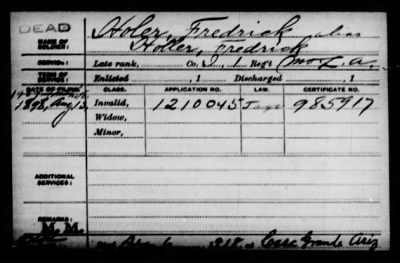 DEAD
NAME OF SOLDIER: Holer, Fredrick alias
Holler, Fredrick
SERVICE: Late rank, Co. I, 1 Reg't Mo. L. A.
TERM OF SERVICE: Enlisted , 1 Discharged , 1
DATE OF FILING. CLASS. APPLICATION NO. LAW. CERTIFICATE NO.
1898, Aug 13 Invalid, 1210045 985917
Widow,
Minor,
ADDITIONAL SERVICES:
REMARKS: M. M.
1918, Casa Grande Ariz